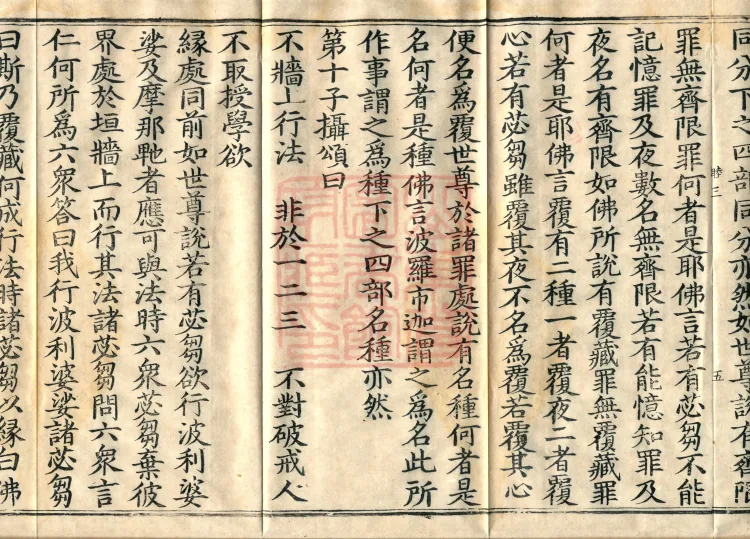 同分下之四部同分亦然如世尊說有齊限
罪無齊限罪何者是耶佛言若有苾芻不能
記憶罪及夜數名無齊限若有能憶知罪及
夜名有齊限如佛所說有覆藏罪無覆藏罪
何者是耶佛言覆有二種一者覆夜二者覆
心若有苾芻雖覆其夜不名為覆若覆其心
便名為覆世尊於諸罪處說有名種何者是
名何者是種佛言波羅市迦謂之為名此所
作事謂之為種下之四部名種亦然
第十子攝頌曰
不牆上行法 非於一二三 不對破戒人
不取授學欲
緣處同前如世尊說若有苾芻欲行波利婆
娑及摩那䭾者應可與法時六眾苾芻棄彼
界處於垣牆上而行其法諸苾芻問六眾言
仁何所為六眾答曰我行波利婆娑諸苾芻
曰斯乃覆藏何成行法時諸苾芻以緣白佛
三 五